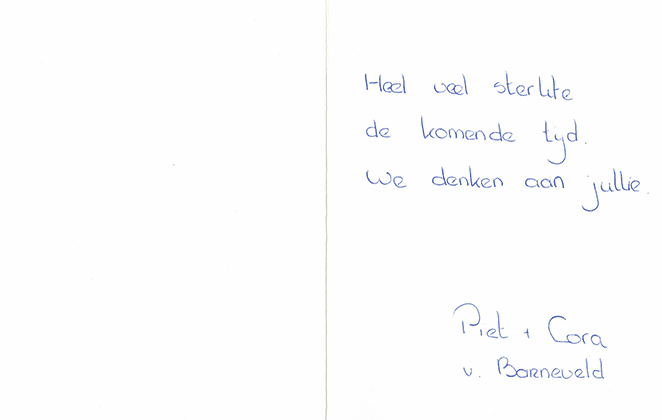 Heel veel sterkte
de komende tijd.
We denken aan jullie.
Piet + Cora
v. Barneveld